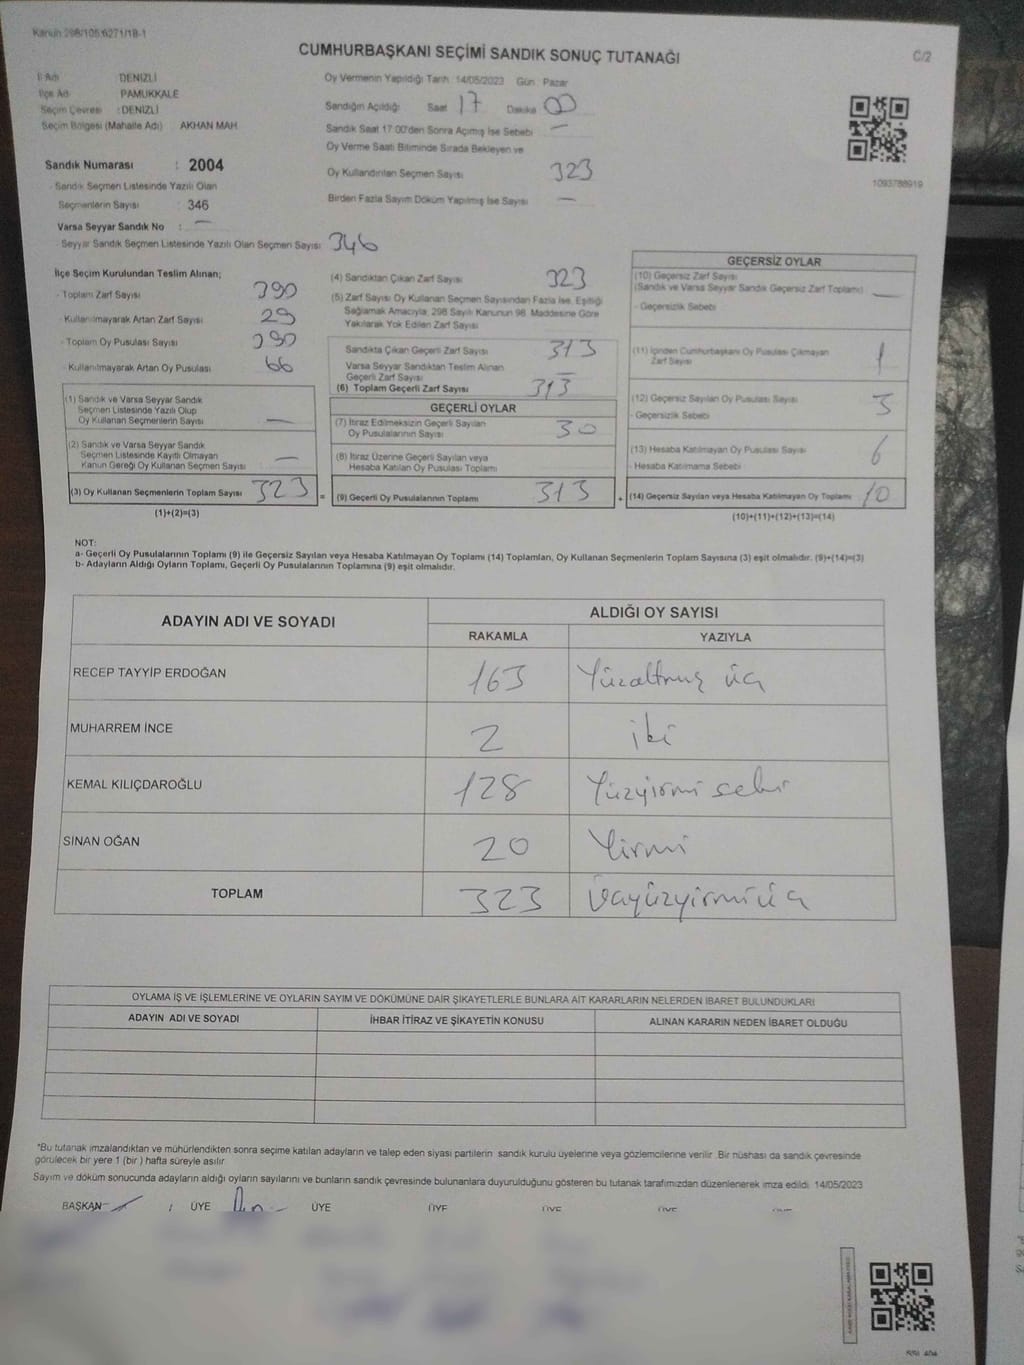 Kanun 298/105;6271/18-1
CUMHURBAŞKANI SEÇİMİ SANDIK SONUÇ TUTANAĞI
C/2
İl Adı DENİZLİ
İlçe Adı PAMUKKALE
Seçim Çevresi : DENİZLİ
Seçim Bölgesi (Mahalle Adı) AKHAN MAH.
Sandık Numarası : 2004
- Sandık Seçmen Listesinde Yazılı Olan
Seçmenlerin Sayısı : 346
Varsa Seyyar Sandık No : —
- Seyyar Sandık Seçmen Listesinde Yazılı Olan Seçmen Sayısı: 346
Oy Vermenin Yapıldığı Tarih :14/05/2023 Gün: Pazar
Sandığın Açıldığı Saat 17 Dakika 00
Sandık Saat 17:00'den Sonra Açılmış İse Sebebi —
Oy Verme Saati Bitiminde Sırada Bekleyen ve
Oy Kullandırılan Seçmen Sayısı 323
Birden Fazla Sayım Döküm Yapılmış İse Sayısı —
1093788919
İlçe Seçim Kurulundan Teslim Alınan;
- Toplam Zarf Sayısı 390
- Kullanılmayarak Artan Zarf Sayısı 29
- Toplam Oy Pusulası Sayısı 390
- Kullanılmayarak Artan Oy Pusulası 66
(1) Sandık ve Varsa Seyyar Sandık
Seçmen Listesinde Yazılı Olup
Oy Kullanan Seçmenlerin Sayısı —
(2) Sandık ve Varsa Seyyar Sandık
Seçmen Listesinde Kayıtlı Olmayan
Kanun Gereği Oy Kullanan Seçmen Sayısı —
(3) Oy Kullanan Seçmenlerin Toplam Sayısı 323 =
(1)+(2)=(3)
(4) Sandıktan Çıkan Zarf Sayısı 323
(5) Zarf Sayısı Oy Kullanan Seçmen Sayısından Fazla İse, Eşitliği
Sağlamak Amacıyla, 298 Sayılı Kanunun 98. Maddesine Göre
Yakılarak Yok Edilen Zarf Sayısı
Sandıkta Çıkan Geçerli Zarf Sayısı 313
Varsa Seyyar Sandıktan Teslim Alınan
Geçerli Zarf Sayısı —
(6) Toplam Geçerli Zarf Sayısı 313
GEÇERLİ OYLAR
(7) İtiraz Edilmeksizin Geçerli Sayılan
Oy Pusulalarının Sayısı 30
(8) İtiraz Üzerine Geçerli Sayılan veya
Hesaba Katılan Oy Pusulası Toplamı
(9) Geçerli Oy Pusulalarının Toplamı 313 +
GEÇERSİZ OYLAR
(10) Geçersiz Zarf Sayısı
(Sandık ve Varsa Seyyar Sandık Geçersiz Zarf Toplamı) —
- Geçersizlik Sebebi
(11) İçinden Cumhurbaşkanı Oy Pusulası Çıkmayan
Zarf Sayısı 1
(12) Geçersiz Sayılan Oy Pusulası Sayısı 3
- Geçersizlik Sebebi
(13) Hesaba Katılmayan Oy Pusulası Sayısı 6
- Hesaba Katılmama Sebebi
(14) Geçersiz Sayılan veya Hesaba Katılmayan Oy Toplamı 10
(10)+(11)+(12)+(13)=(14)
NOT:
a- Geçerli Oy Pusulalarının Toplamı (9) ile Geçersiz Sayılan veya Hesaba Katılmayan Oy Toplamı (14) Toplamları, Oy Kullanan Seçmenlerin Toplam Sayısına (3) eşit olmalıdır. (9)+(14)=(3)
b- Adayların Aldığı Oyların Toplamı, Geçerli Oy Pusulalarının Toplamına (9) eşit olmalıdır.
ADAYIN ADI VE SOYADI ALDIĞI OY SAYISI
RAKAMLA YAZIYLA
RECEP TAYYİP ERDOĞAN 163 Yüzaltmış üç
MUHARREM İNCE 2 iki
KEMAL KILIÇDAROĞLU 128 Yüzyirmi sekiz
SİNAN OĞAN 20 Yirmi
TOPLAM 323 üçyüzyirmiüç
OYLAMA İŞ VE İŞLEMLERİNE VE OYLARIN SAYIM VE DÖKÜMÜNE DAİR ŞİKAYETLERLE BUNLARA AİT KARARLARIN NELERDEN İBARET BULUNDUKLARI
ADAYIN ADI VE SOYADI İHBAR İTİRAZ VE ŞİKAYETİN KONUSU ALINAN KARARIN NEDEN İBARET OLDUĞU
*Bu tutanak imzalandıktan ve mühürlendikten sonra seçime katılan adayların ve talep eden siyasi partilerin sandık kurulu üyelerine veya gözlemcilerine verilir. Bir nüshası da sandık çevresinde
görülecek bir yere 1 (bir ) hafta süreyle asılır.
Sayım ve döküm sonucunda adayların aldığı oyların sayılarını ve bunların sandık çevresinde bulunanlara duyurulduğunu gösteren bu tutanak tarafımızdan düzenlenerek imza edildi. 14/05/2023
BAŞKAN ÜYE ÜYE ÜYE ÜYE ÜYE ÜYE